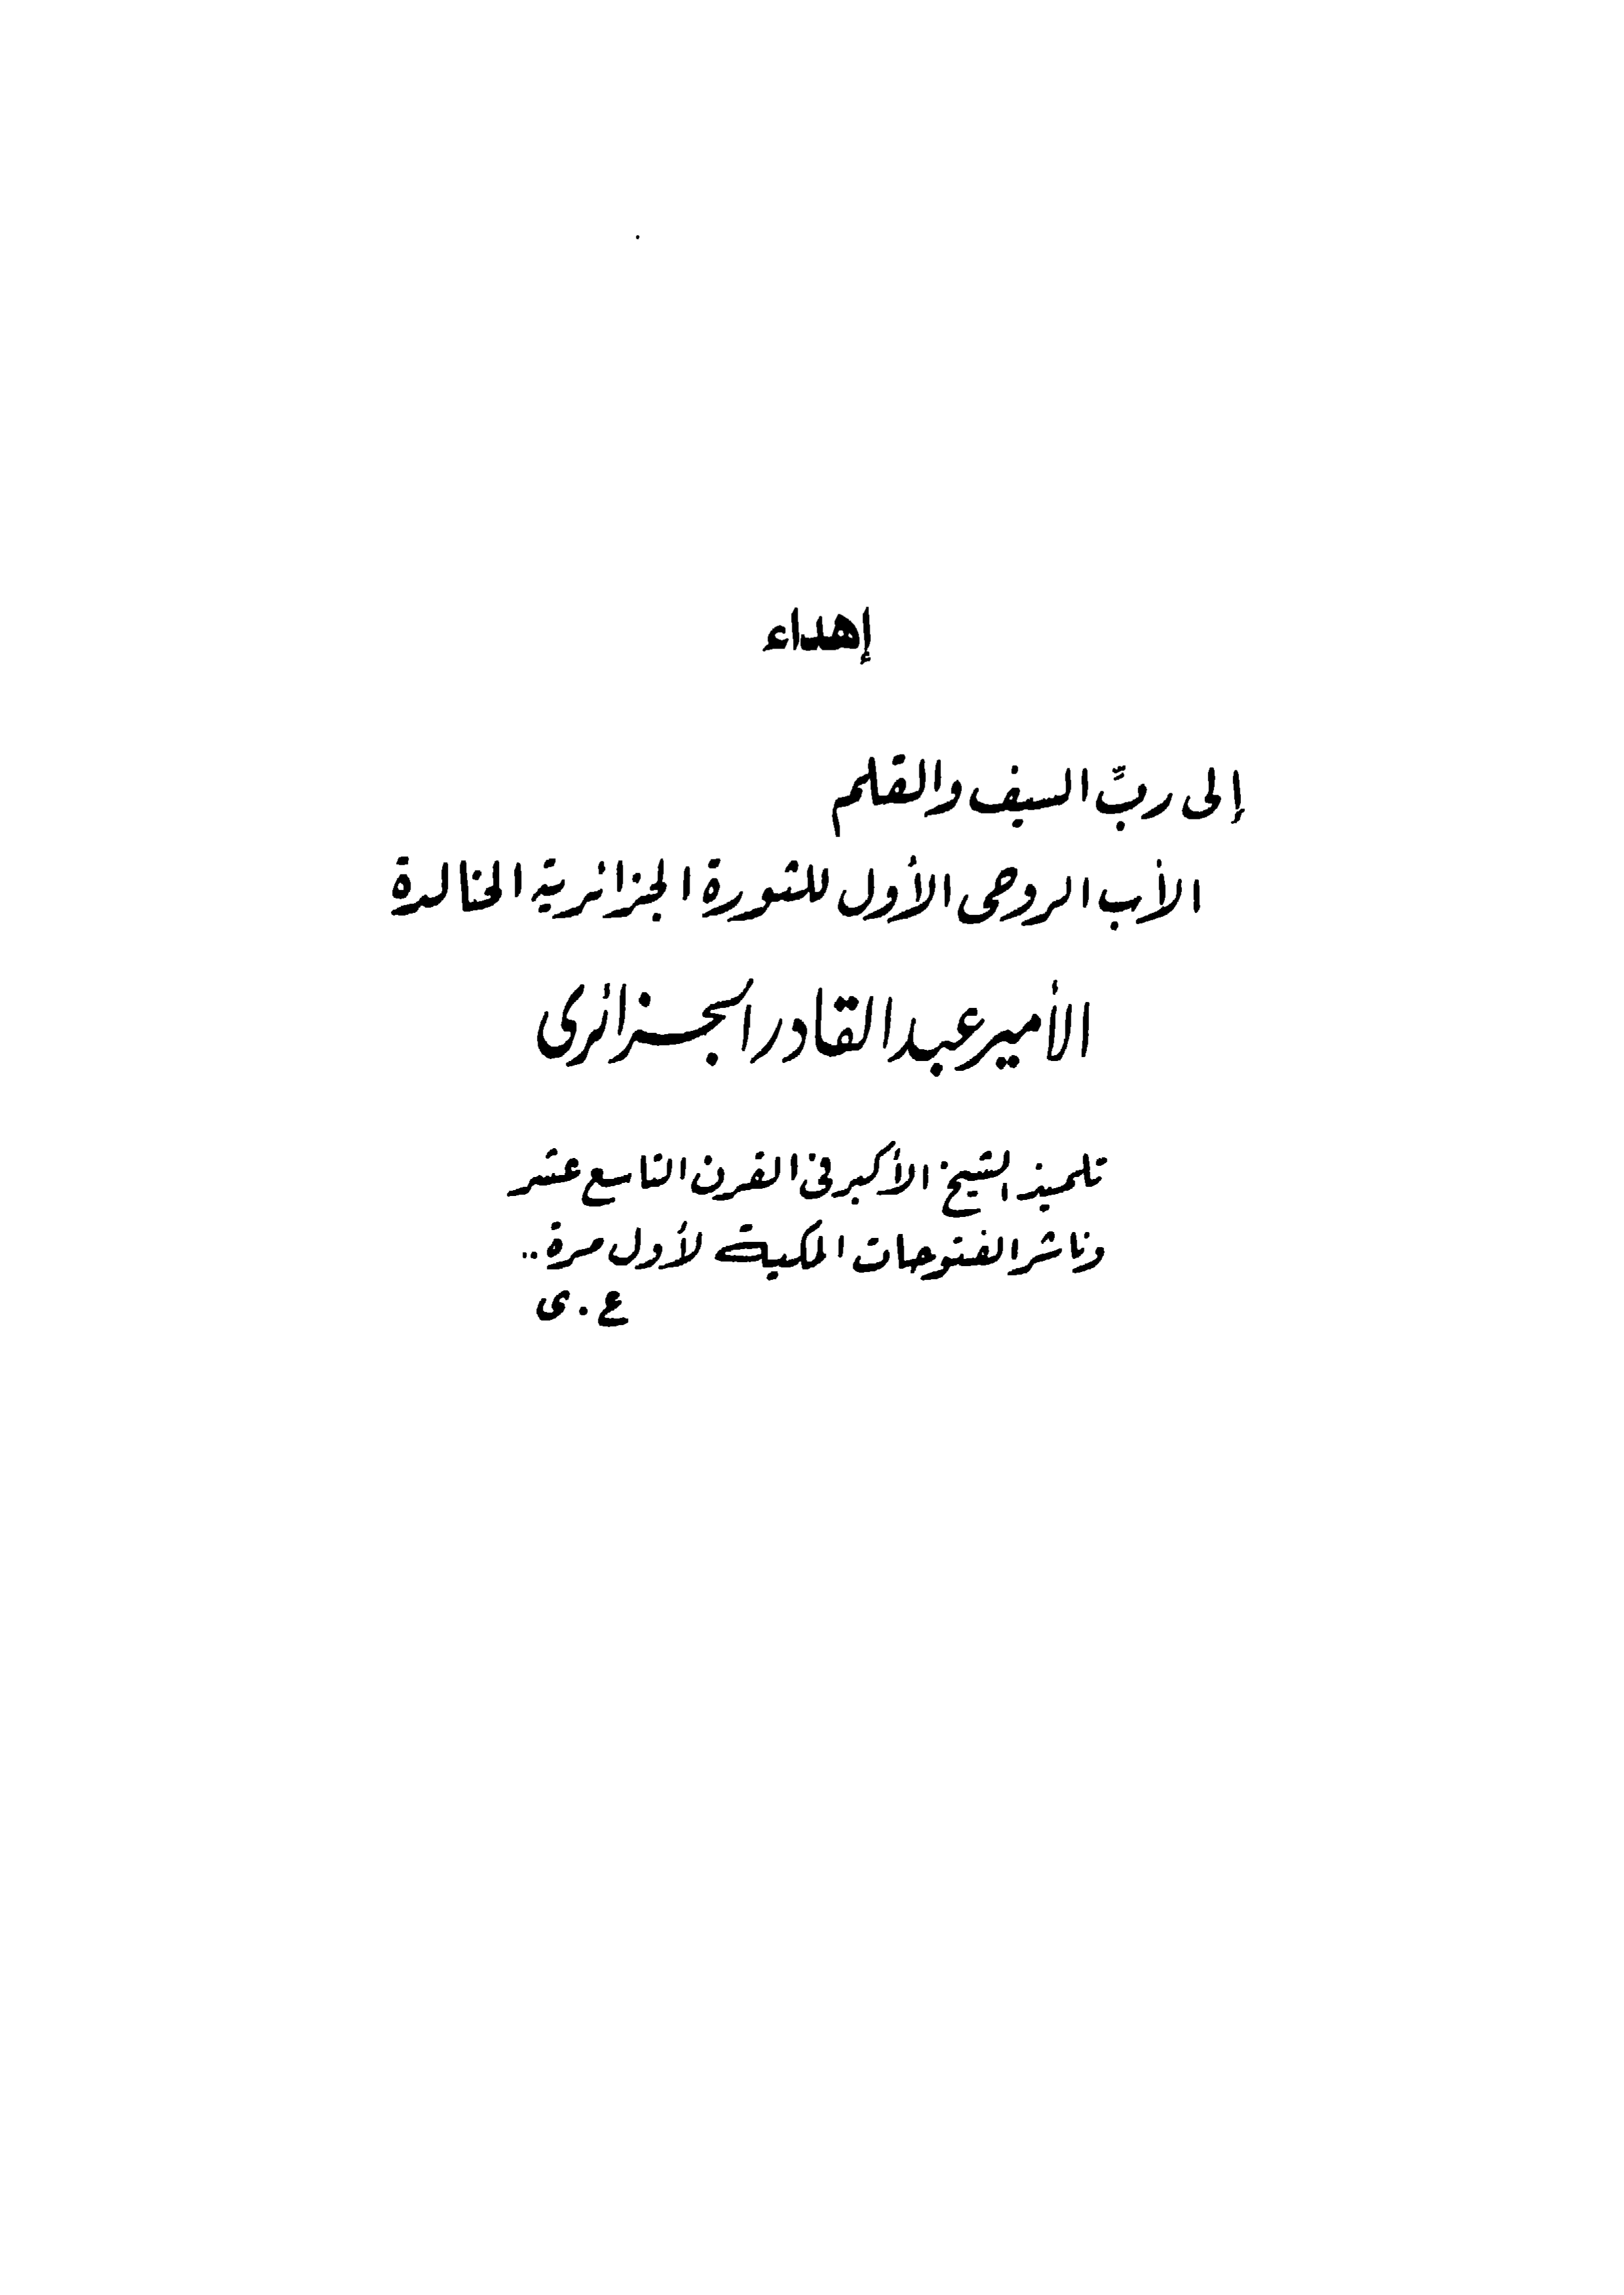 إهداء
إلى ربِّ السيف والقلم
الأب الروحى الأول للثورة الجزائرية الخالدة
الأمير عبد القادر الجزائرى
تلميذ الشيخ الأكبر فى القرن التاسع عشر
وناشر الفتوحات المكية لأول مرة..
ع.ى